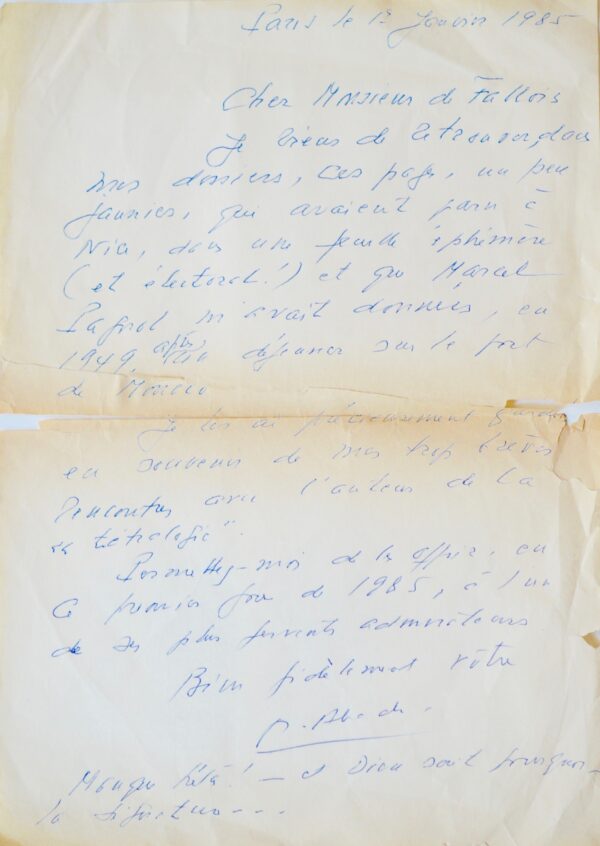 Paris le 1er Janvier 1985
Cher Monsieur de Fallois
Je viens de retrouver, dans
mes dossiers, ces pages, un peu
jaunies, qui avaient paru à
Nice, dans une feuille éphémère
(et électorale!) et que Marcel
Pagnol m'avait données, en
1949, après un déjeuner sur le port
de Monaco
Je les ai précieusement gardées
en souvenir de mes trop brèves
rencontres avec l'auteur de la
"tétralogie".
Permettez-moi de les offrir, en
ce premier jour de 1985, à l'un
de ses plus fervents admirateurs
Bien fidèlement vôtre
Manque hélas! - et Dieu sait pourquoi -
la signature - - -